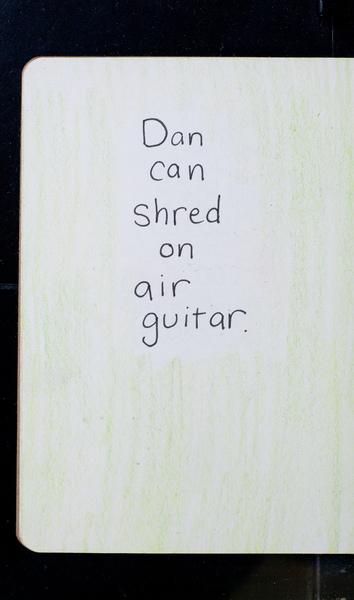 Dan
can
shred
on
air
guitar.